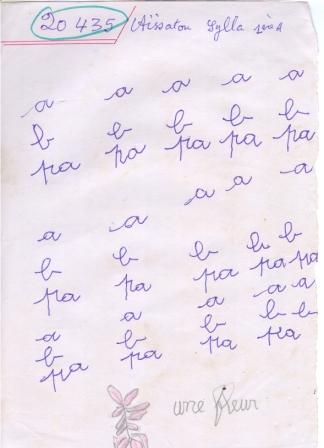 20 435 Aïssatou Sylla
a a a a a
b b b b b
pa pa pa pa pa
a a a
a a
b b b b b
pa pa pa pa pa
a a a a a
b b b b b
pa pa pa pa
une fleur